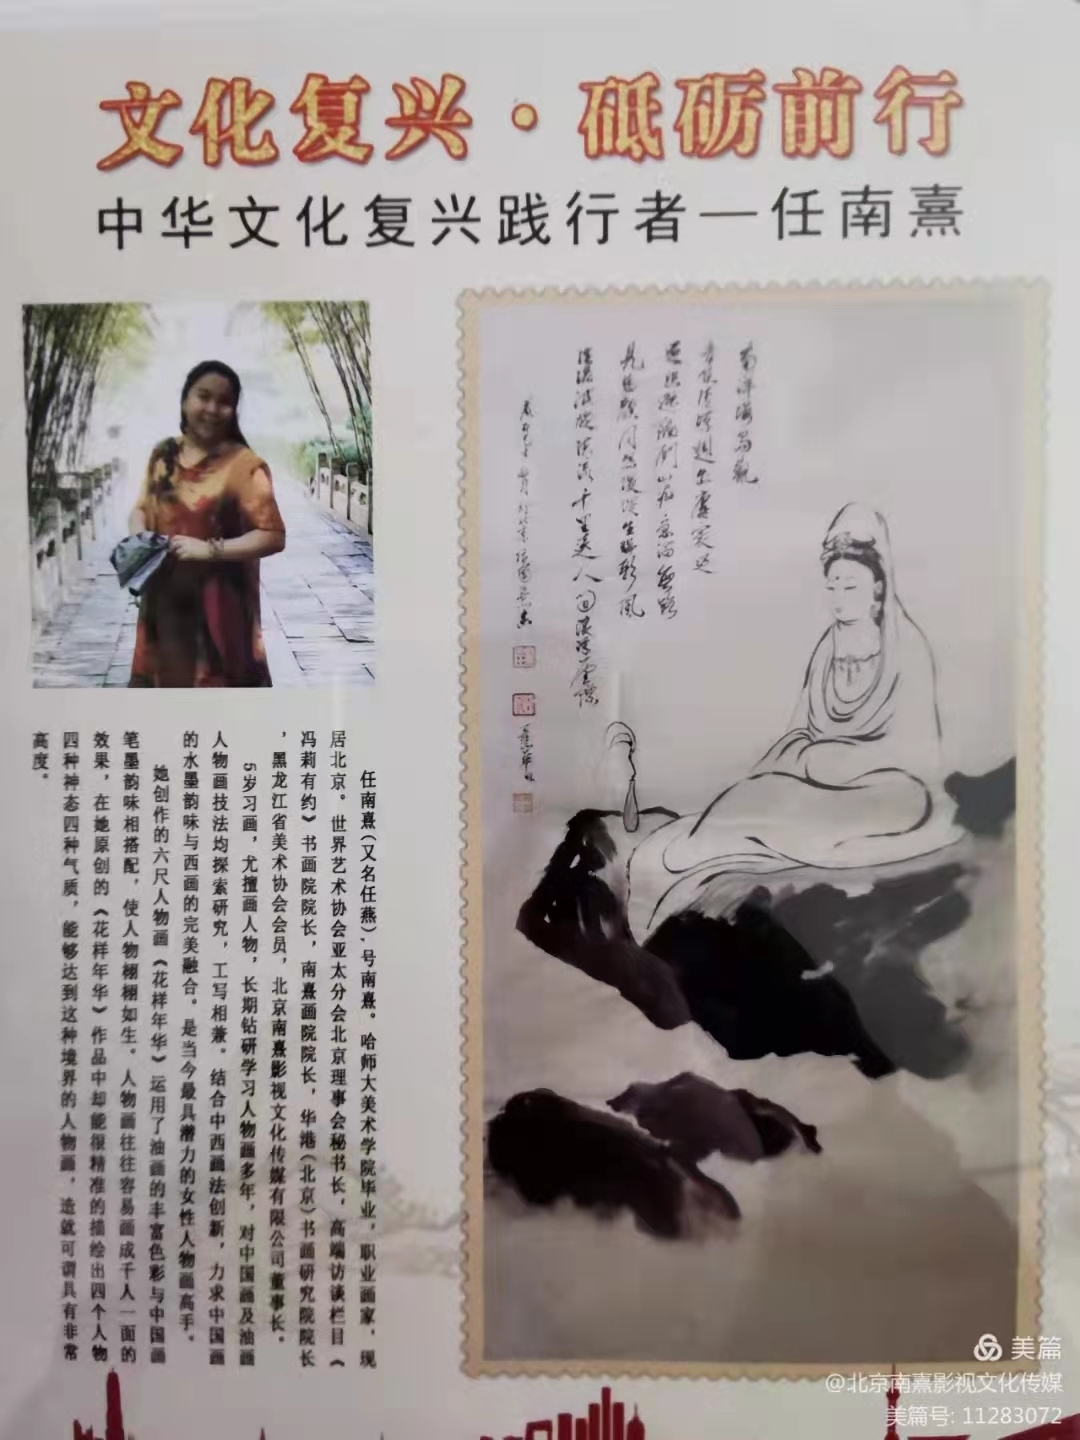 文化复兴·砥砺前行
中华文化复兴践行者—任南熹
任南熹(又名任燕),号南熹。哈师大美术学院毕业,职业画家,现
居北京。世界艺术协会亚太分会北京理事会秘书长,高端访谈栏目《
冯莉有约》书画院院长,南熹画院院长,华港(北京)书画研究院院长
,黑龙江省美术协会会员,北京南熹影视文化传媒有限公司董事长。
5岁习画,尤擅画人物,长期钻研学习人物画多年,对中国画及油画
人物画技法均探索研究,工写相兼。结合中西画法创新,力求中国画
的水墨韵味与西画的完美融合。是当今最具潜力的女性人物画高手。
她创作的六尺人物画《花样年华》运用了油画的丰富色彩与中国画
笔墨韵味相搭配,使人物栩栩如生。人物画往往容易画成千人一面的
效果,在她原创的《花样年华》作品中却能很精准的描绘出四个人物
四种神态四种气质,能够达到这种境界的人物画,造就可谓具有非常
高度。
美篇
@北京南熹影视文化传媒
美篇号: 11283072